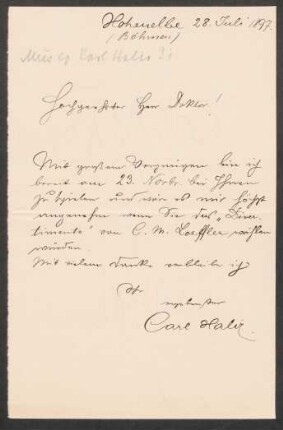 Hohenelbe 28. Juli 1897.
(Böhmen)
Hochgeehrter Herr Doktor!
Mit großem Vergnügen bin ich
bereit am 23. Novbr. bei Ihnen
zu spielen und wär es mir höchst
angenehm wenn Sie das "Diver-
timento" von C. M. Loeffler wählen
würden.
Mit vielem Danke verbleibe ich
Ihr
ergebenster
Carl Halir.